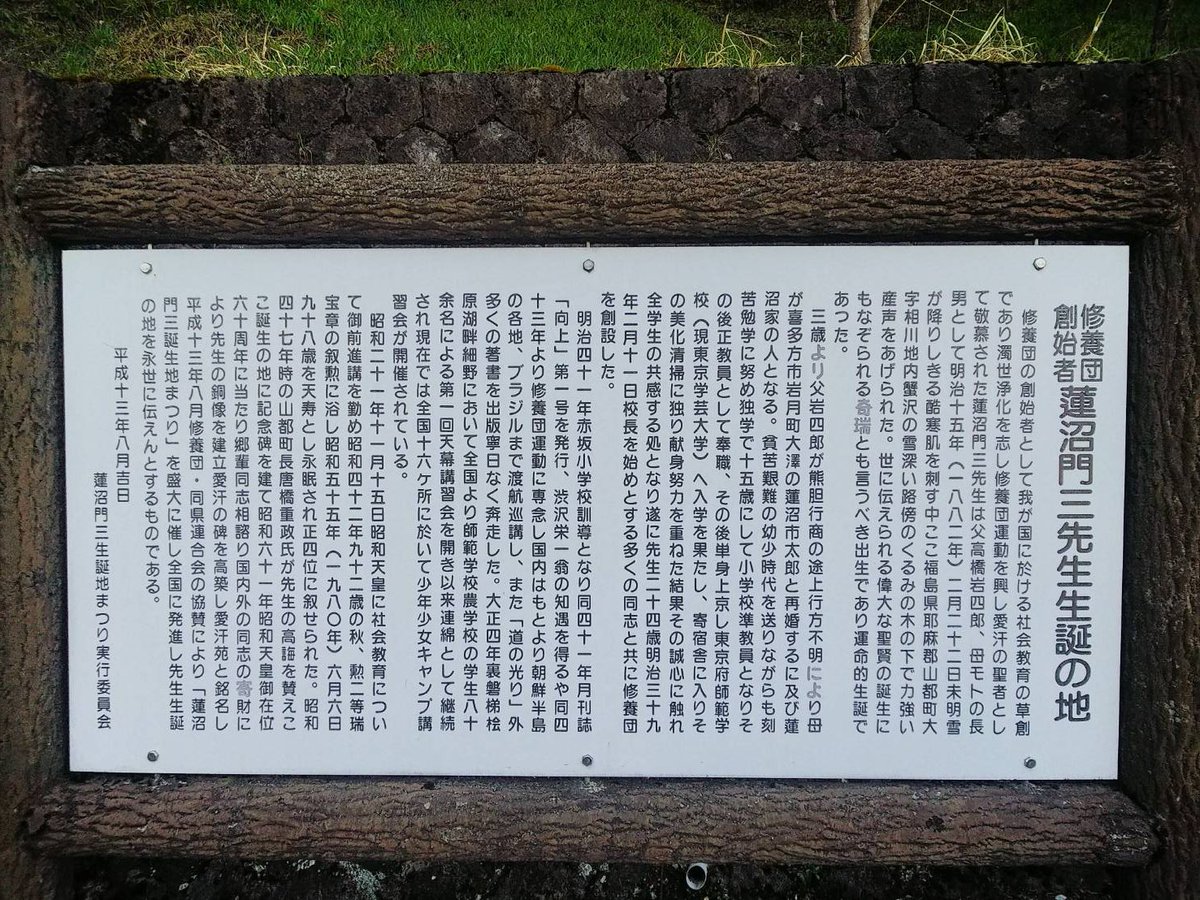 修養団
創始者 蓮沼門三先生生誕の地
修養団の創始者として我が国に於ける社会教育の草創
であり濁世浄化を志し修養団運動を興し愛汗の聖者とし
て敬慕された蓮沼門三先生は父高橋岩四郎、母モトの長
男として明治十五年(一八八二年)二月二十二日未明雪
が降りしきる酷寒肌を刺す中ここ福島県耶麻郡山都町大
字相川地内蟹沢の雪深い路傍のくるみの木の下で力強い
産声をあげられた。世に伝えられる偉大な聖賢の誕生に
もなぞられる奇瑞とも言うべき出生であり運命的生誕で
あった。
三歳より父岩四郎が熊胆行商の途上行方不明により母
が喜多方市岩月町大澤の蓮沼市太郎と再婚するに及び蓮
沼家の人となる。貧苦艱難の幼少時代を送りながらも刻
苦勉学に努め独学で十五歳にして小学校準教員となりそ
の後正教員として奉職、その後単身上京し東京府師範学
校(現東京学芸大学)へ入学を果たし、寄宿舎に入りそ
の美化清掃に独り献身努力を重ねた結果その誠心に触れ
全学生の共感する処となり遂に先生二十四歳明治三十九
年二月十一日校長を始めとする多くの同志と共に修養団
を創設した。
明治四十一年赤坂小学校訓導となり同四十一年月刊誌
「向上」第一号を発行、渋沢栄一翁の知遇を得るや同四
十三年より修養団運動に専念し国内はもとより朝鮮半島
の各地、ブラジルまで渡航巡講し、また「道の光り」外
多くの著書を出版寧日なく奔走した。大正四年裏磐梯桧
原湖畔細野において全国より師範学校農学校の学生八十
余名による第一回天幕講習会を開き以来連綿として継続
され現在では全国十六ヶ所に於いて少年少女キャンプ講
習会が開催されている。
昭和二十一年十一月十五日昭和天皇に社会教育につい
て御前進講を勤め昭和四十二年九十二歳の秋、勲二等瑞
宝章の叙勲に浴し昭和五十五年(一九八〇年)六月六日
九十八歳を天寿とし永眠され正四位に叙せられた。昭和
四十七年時の山都町長唐橋重政氏が先生の高誨を賛えこ
こ誕生の地に記念碑を建て昭和六十一年昭和天皇御在位
六十周年に当たり郷輩同志相諮り国内外の同志の寄財に
より先生の銅像を建立愛汗の碑を高築し愛汗苑と銘名し
平成十三年八月修養団・同県連合会の協賛により「蓮沼
門三誕生地まつり」を盛大に催し全国に発進し先生生誕
の地を永世に伝えんとするものである。
平成十三年八月吉日
蓮沼門三生誕地まつり実行委員会